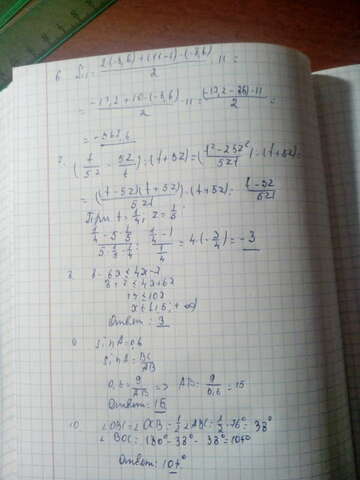 6. S₁₁ = (2·(-8,6) + (11-1)·(-3,6))/2 · 11 =
= (-17,2 + 10·(-3,6))/2 · 11 = ((-17,2 - 36)·11)/2 =
7. (t/5z - 5z/t) : (t+5z) = (t² - 25z²/5zt) : (t+5z) =
= ((t-5z)(t+5z)/5zt) : (t+5z) = t-5z/5zt
При t = 1/4, z = 1/5:
8 - 6x ≤ 4x - 7
8 + 7 ≤ 4x + 6x
Ответ: 3
9 sin A = 0,6
sin A = BC/AB
0,6 = 9/AB => AB = 9/0,6 = 15
Ответ: 15
10 ∠OBC = ∠OCB = 1/2 ∠ABC = 1/2 · 76° = 38°
∠BOC = 180° - 38° - 38° = 104°
Ответ: 104°